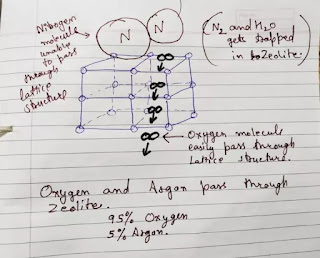 Nitrogen
molecule
unable
to pass
through
lattice
structure
N N
(N₂ and H₂O
gets trapped
in Zeolite.)
Oxygen molecule
easily pass through
Lattice structure.
Oxygen and Argon pass through
Zeolite.
95% Oxygen
5% Argon.